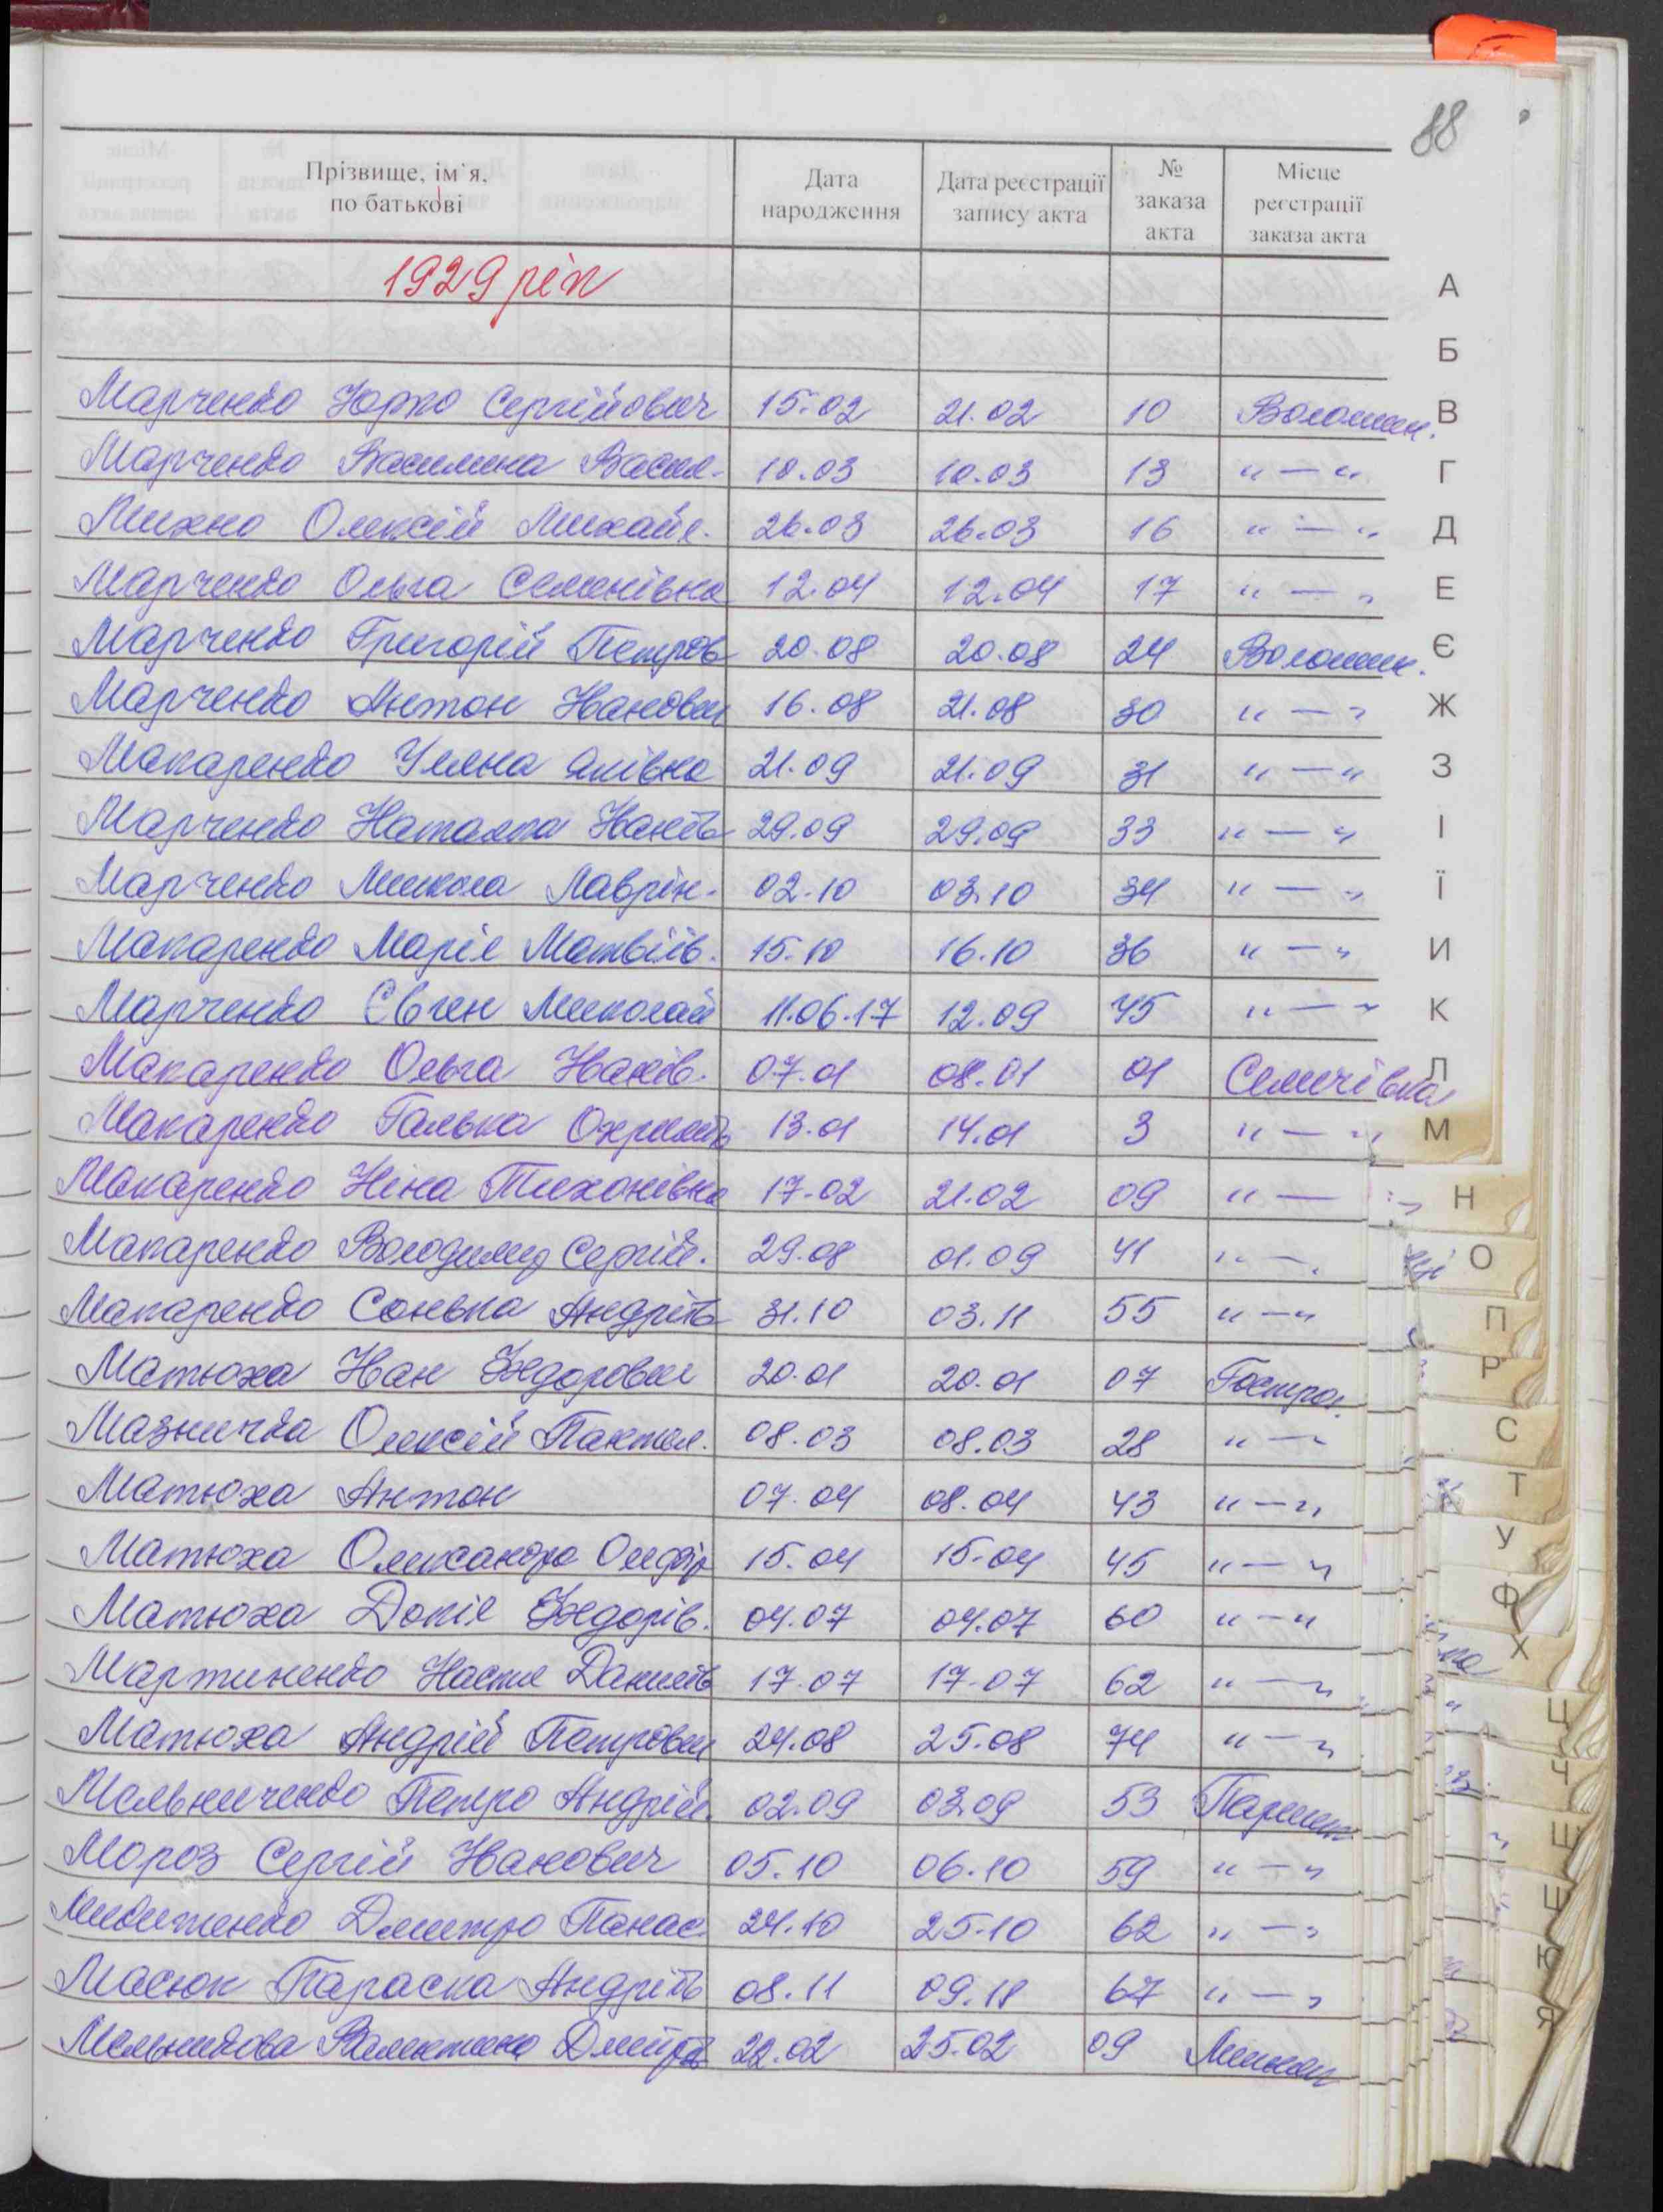 88
Прізвище, ім`я, по батькові | Дата народження | Дата реєстрації запису акта | № заказа акта | Місце реєстрації заказа акта
1929 рік
Марченко Юрко Сергійович 15.02 21.02 10 Волошин.
Марченко Василина Васил. 10.03 10.03 13 "—"
Михно Олексій Михайл. 26.03 26.03 16 "—"
Марченко Ольга Семенівна 12.04 12.04 17 "—"
Марченко Григорій Петров 20.08 20.08 24 Волошин.
Марченко Антон Іванович 16.08 21.08 30 "—"
Макаренко Уляна Яківна 21.09 21.09 31 "—"
Марченко Наталка Іванів 29.09 29.09 33 "—"
Марченко Микола Лаврін. 02.10 03.10 34 "—"
Макаренко Марія Матвіїв. 15.10 16.10 36 "—"
Марченко Євген Миколай 11.06.17 12.09 45 "—"
Макаренко Ольга Іванів. 07.01 08.01 01 Семичівка
Макаренко Галька 13.01 14.01 3 "—"
Макаренко Ніна Тихонівна 17.02 21.02 09 "—"
Макаренко Володимир Сергій. 29.08 01.09 41 "—"
Макаренко Сонька Андріїв 31.10 03.11 55 "—"
Матюха Іван Федорович 20.01 20.01 07 Гострол.
Мазничка Олексій Пантел. 08.03 08.03 28 "—"
Матюха Антон 07.04 08.04 43 "—"
Матюха Олександра 15.04 15.04 45 "—"
Матюха Докія Федорів. 04.07 04.07 60 "—"
Мартиненко Настя Данилів 17.07 17.07 62 "—"
Матюха Андрій Петрович 24.08 25.08 74 "—"
Мельниченко Петро Андрій. 02.09 03.09 53
Мороз Сергій Іванович 05.10 06.10 59 "—"
Дмитро Панас. 24.10 25.10 62 "—"
Масюк Параска Андріїв 08.11 09.11 67 "—"
Мельникова Валентина Дмитрів 22.02 25.02 09
А
Б
В
Г
Д
Е
Є
Ж
З
І
Ї
И
К
Л
М
Н
О
П
Р
С
Т
У
Ф
Х
Ц
Ч
Ш
Щ
Ю
Я